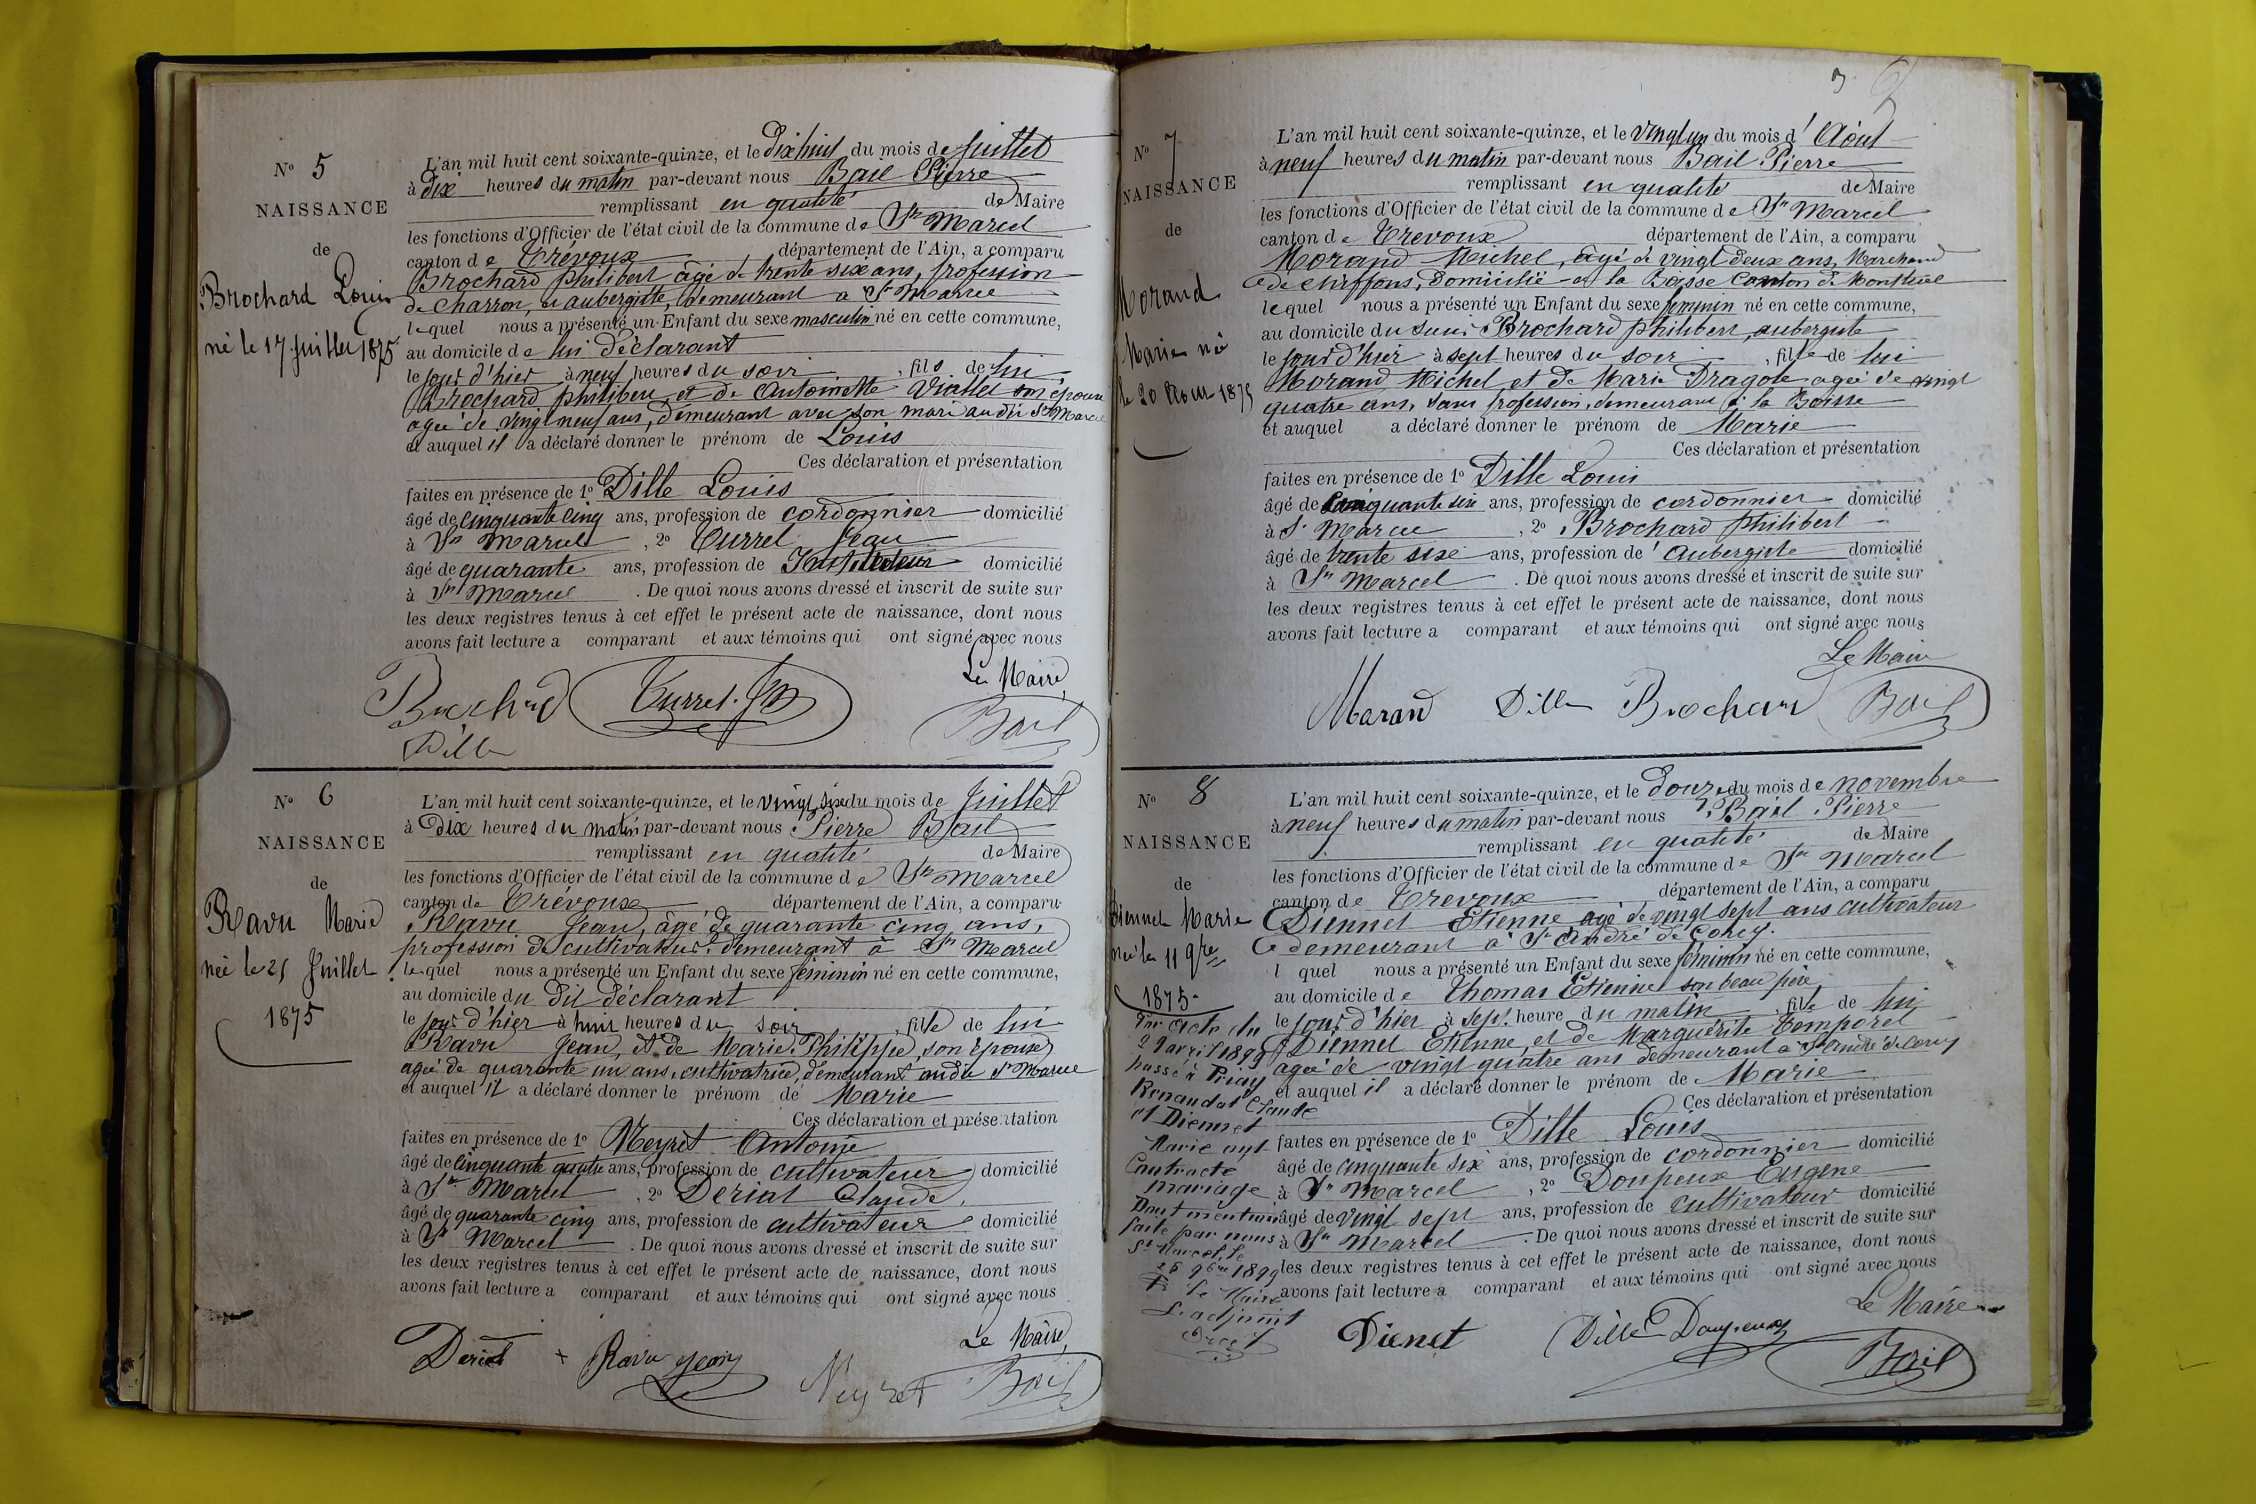 N° 5
NAISSANCE
de
Brochard Louis
né le 17 Juillet 1875
L'an mil huit cent soixante-quinze, et le dix huit du mois de Juillet
à dix heures du matin par-devant nous Bail Pierre
remplissant en qualité de Maire
les fonctions d'Officier de l'état civil de la commune de St Marcel
canton de Trévoux département de l'Ain, a comparu
Brochard Philibert âgé de trente six ans, profession
de charron, et aubergiste, demeurant à St Marcel
lequel nous a présenté un Enfant du sexe masculin né en cette commune,
au domicile de lui déclarant
le jour d'hier à neuf heures du soir, fils de lui
Brochard Philibert, et de Antoinette Viallet son épouse
agée de vingt neuf ans, demeurant avec son mari audit St Marcel
et auquel il a déclaré donner le prénom de Louis
Ces déclaration et présentation
faites en présence de 1° Dille Louis
âgé de cinquante cinq ans, profession de cordonnier domicilié
à St Marcel, 2° Turrel Jean
âgé de quarante ans, profession de Instituteur domicilié
à St Marcel. De quoi nous avons dressé et inscrit de suite sur
les deux registres tenus à cet effet le présent acte de naissance, dont nous
avons fait lecture a comparant et aux témoins qui ont signé avec nous
Le Maire
Brochard Turrel Bail
Dille
N° 6
NAISSANCE
de
Ravu Marie
née le 25 Juillet
1875
L'an mil huit cent soixante-quinze, et le vingt six du mois de Juillet
à Dix heures du matin par-devant nous Pierre Bail
remplissant en qualité de Maire
les fonctions d'Officier de l'état civil de la commune de St Marcel
canton de Trévoux département de l'Ain, a comparu
Ravu Jean, âgé de quarante cinq ans,
profession de cultivateur demeurant à St Marcel
lequel nous a présenté un Enfant du sexe féminin né en cette commune,
au domicile du dit déclarant
le jour d'hier à huit heures du soir, fille de lui
Ravu Jean, et de Marie Philippe, son épouse
agée de quarante un ans, cultivatrice, demeurant audit St Marcel
et auquel il a déclaré donner le prénom de Marie
Ces déclaration et présentation
faites en présence de 1° Neyret Antoine
âgé de cinquante quatre ans, profession de cultivateur domicilié
à St Marcel, 2° Deriat Claude,
âgé de quarante cinq ans, profession de cultivateur domicilié
à St Marcel. De quoi nous avons dressé et inscrit de suite sur
les deux registres tenus à cet effet le présent acte de naissance, dont nous
avons fait lecture a comparant et aux témoins qui ont signé avec nous
Le Maire
Deriat + Ravu Jean Neyret Bail
3
N° 7
NAISSANCE
de
Morand
Marie né
le 20 Aout 1875
L'an mil huit cent soixante-quinze, et le vingt un du mois d'Août
à neuf heures du matin par-devant nous Bail Pierre
remplissant en qualité de Maire
les fonctions d'Officier de l'état civil de la commune de St Marcel
canton de Trevoux département de l'Ain, a comparu
Morand Michel, âgé de vingt deux ans, Marchand
de chiffons, domicilié à la Boisse Canton de Montluel
lequel nous a présenté un Enfant du sexe féminin né en cette commune,
au domicile du sieur Brochard Philibert, aubergiste
le jour d'hier à sept heures du soir, fille de lui
Morand Michel et de Marie Dragole agée de vingt
quatre ans, sans profession, demeurant à la Boisse
et auquel a déclaré donner le prénom de Marie
Ces déclaration et présentation
faites en présence de 1° Dille Louis
âgé de cinquante six ans, profession de cordonnier domicilié
à St Marcel, 2° Brochard Philibert
âgé de trente six ans, profession de aubergiste domicilié
à St Marcel. De quoi nous avons dressé et inscrit de suite sur
les deux registres tenus à cet effet le présent acte de naissance, dont nous
avons fait lecture a comparant et aux témoins qui ont signé avec nous
Le Maire
Maran Dille Brochard Bail
N° 8
NAISSANCE
de
Diennet Marie
née le 11 9bre
1875
Par acte du
2 avril 1899
passé à Priay
Renaudat Claude
et Diennet
Marie ont
Contracté
mariage
Dont mention
faite par nous
St Marcel, le
25 9bre 1899
Pr Le Maire
L'adjoint
L'an mil huit cent soixante-quinze, et le douze du mois de novembre
à neuf heures du matin par-devant nous Bail Pierre
remplissant en qualité de Maire
les fonctions d'Officier de l'état civil de la commune de St Marcel
canton de Trevoux département de l'Ain, a comparu
Diennet Etienne agé de vingt sept ans cultivateur
demeurant à St André de Corcy.
l quel nous a présenté un Enfant du sexe féminin né en cette commune,
au domicile de Thomas Etienne son beau père
le jour d'hier à sept heure du matin, fille de lui
Diennet Etienne, et de Marguerite Temporel
agée de vingt quatre ans demeurant à St André de Corcy
et auquel il a déclaré donner le prénom de Marie
Ces déclaration et présentation
faites en présence de 1° Dille Louis
âgé de cinquante six ans, profession de cordonnier domicilié
à St Marcel, 2° Doupeux Eugène
âgé de vingt sept ans, profession de cultivateur domicilié
à St Marcel. De quoi nous avons dressé et inscrit de suite sur
les deux registres tenus à cet effet le présent acte de naissance, dont nous
avons fait lecture a comparant et aux témoins qui ont signé avec nous
Le Maire
Dienet Dille Doupeux Bail